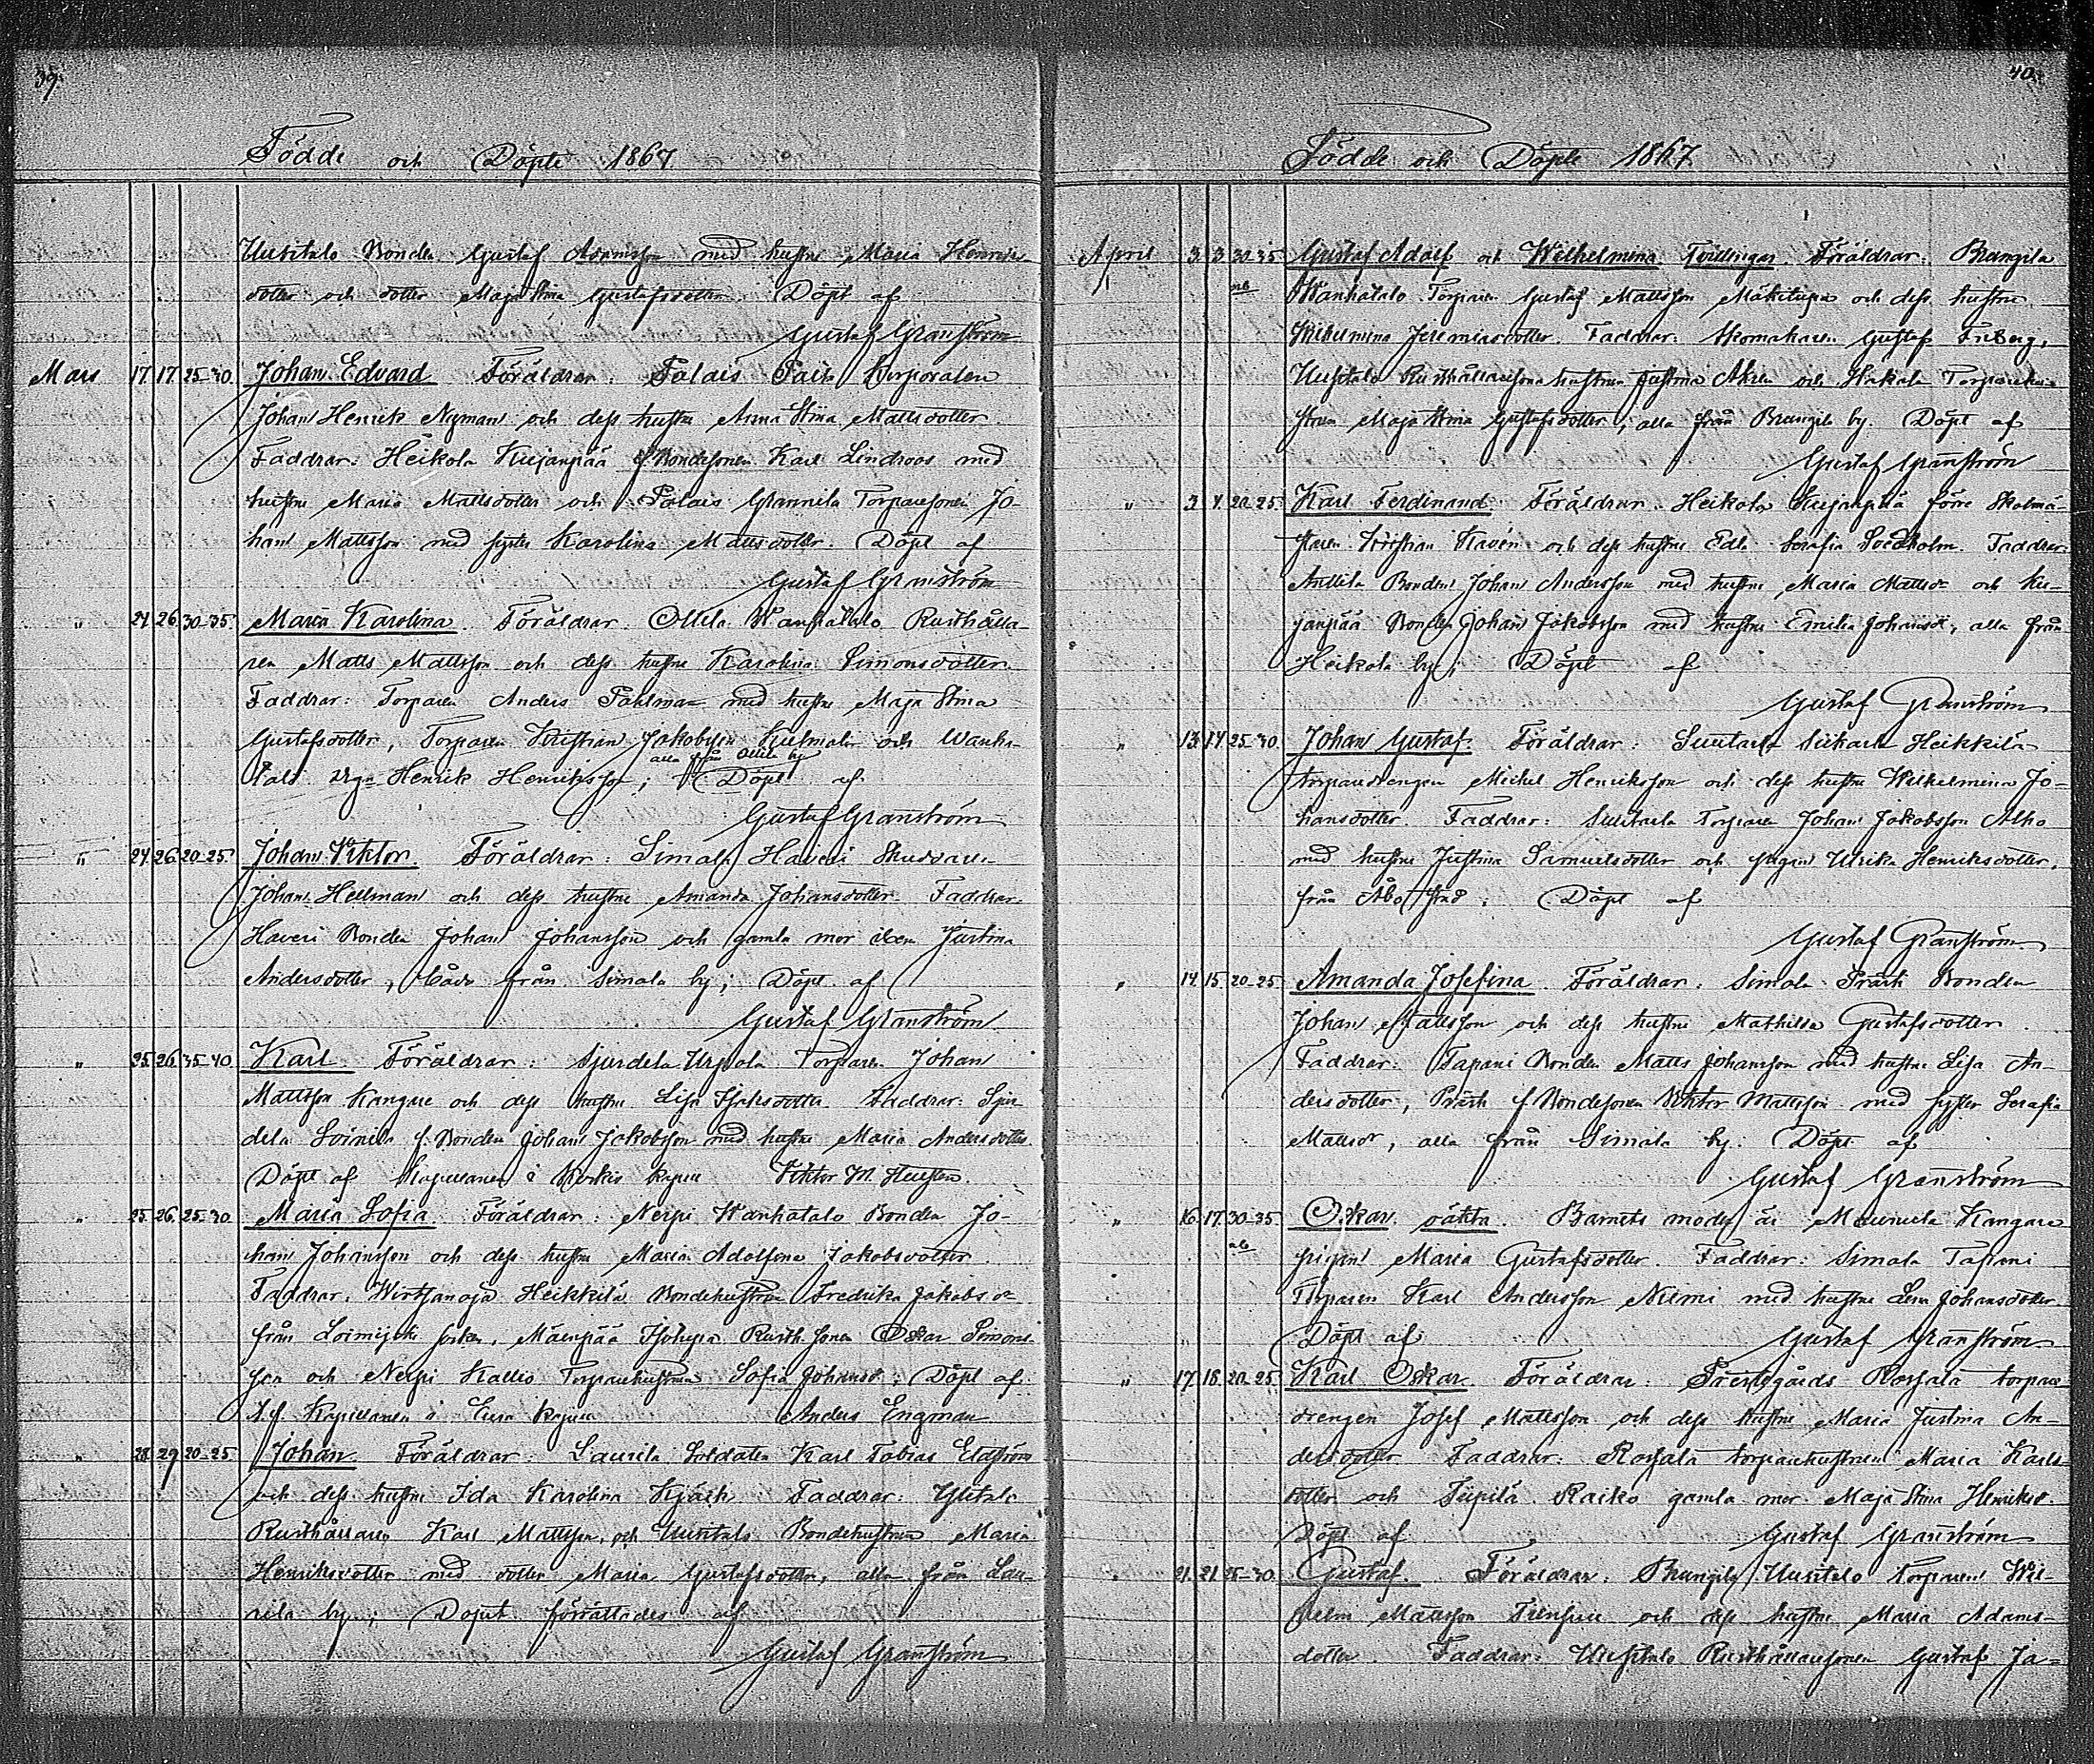 39.
Födde och Döpte 1867
Uusitalo Bonden Gustaf Adamsson med hustru Maria Henriks-
dotter och dotter Maja Stina Gustafsdotter. Döpt af
Gustaf Granström
Mars 17. 17. 25-30. Johan Edvard Föräldrar: Palais Corporalen
Johan Henrik Nyman och dess hustru Anna Stina Mattsdotter
Faddrar: Heikola Kujanpää f. Bondesonen Karl Lindroos med
hustru Maria Mattsdotter och Palais Grannila Torparesonen Jo-
han Mattsson med syster Karolina Mattsdotter. Döpt af
Gustaf Granström
" 24 26 30-35. Maria Karolina. Föräldrar. Ollila Wanhatalo Rusthålla-
ren Matts Mattsson och dess hustru Karolina Simonsdotter.
Faddrar: Torparen Anders Pahlman med hustru Maja Stina
Gustafsdotter, Torparen Kristian Jakobsson och Wanha-
alla från Ollila by
talo Henrik Henriksson; Döpt af
Gustaf Granström
" 24. 26. 20-25. Johan Viktor. Föräldrar: Simala Haveri
Johan Hellman och dess hustru Amanda Johansdotter. Faddrar.
Haveri Bonden Johan Johansson och gamla mor Justina
Andersdotter, både från Simala by; Döpt af
Gustaf Granström
" 25. 26. 35-40 Karl. Föräldrar: Sjurdela Urpola Torparen Johan
Mattsson Kangare och dess hustru Lisa Isaksdotter. Faddrar: Sjur-
dela f. Bonden Johan Jakobsson med hustru Maria Andersdotter
Döpt af Kapellanen i kapell Viktor M.
" 25. 26. 25-30 Maria Sofia Föräldrar: Neipi Wanhatalo Bonden Jo-
han Johansson och dess hustru Maria Adolfina Jakobsdotter.
Faddrar. Wirtsanoja Heikkilä Bondehustrun Fredrika Jakobsdr
från Loimijoki socken, Mäenpää Rusth. sonen Oskar Simons-
son och Neipi Kallio Torparehustrun Sofia Johansdr; Döpt af
t.f. Kapellanen i Eura kapell Anders Engman
" 28. 29 20-25 Johan Föräldrar: Laurila Soldaten Karl Tobias
och dess hustru Ida Karolina Faddrar: Ylitalo
Rusthållaren Karl Mattsson, och Uusitalo Bondehustrun Maria
Henriksdotter med dotter Maria Gustafsdotter, alla från Lau-
rila by; Dopet förrättades af
Gustaf Granström
40.
Födde och Döpte 1867
April 3. 3 30-35 Gustaf Adolf och Wilhelmina Tvillingar. Föräldrar: Prungila
Wanhatalo Torparen Gustaf Mattsson Mäkitupa och dess hustru
Wilhelmina Jeremiasdotter. Faddrar: Skomakaren Gustaf Friberg,
Uusitalo Rusthållaresons hustrun Justina och Hakala Torparehu-
strun Maja Stina Gustafsdotter, alla från Prungila by. Döpt af
Gustaf Granström
" 3. 4. 20-25. Karl Ferdinand. Föräldrar. Heikola Kujanpää förre Skolmä-
staren Kristian Kavén och dess hustru Edla Serafia Soedholm. Faddrar
Anttila Bonden Johan Andersson med hustru Maria Mattsdr och Ku-
janpää Bonden Johan Jakobsson med hustru Emilia Johansdr, alla från
Heikola by; Döpt af
Gustaf Granström
" 13. 14 25-30. Johan Gustaf. Föräldrar: Suutarla Heikkilä
torparedrengen Michel Henriksson och dess hustru Wilhelmina Jo-
hansdotter. Faddrar: Suutarla Torparen Johan Jakobsson Alho
med hustru Justina Samuelsdotter och pigan Ulrika Henriksdotter,
från Åbo stad; Döpt af
Gustaf Granström
" 14. 15. 20-25. Amanda Josefina. Föräldrar: Simala Prästi Bonden
Johan Mattsson och dess hustru Mathilda Gustafsdotter.
Faddrar: Tapani Bonden Matts Johansson med hustru Lisa An-
dersdotter, Prästi f. Bondesonen Viktor Mattsson med syster Serafia
Mattsdr, alla från Simala by. Döpt af
Gustaf Granström
" 16. 17. 30-35. Oskar oäkta. Barnets moder är Kangare
pigan Maria Gustafsdotter. Faddrar: Simala Tapani
Torparen Karl Andersson Niemi med hustru Lena Johansdotter.
Döpt af Gustaf Granström
" 17. 18. 20-25. Karl Oskar. Föräldrar: Prestegårds torpare
drengen Josef Mattsson och dess hustru Maria Justina An-
dersdotter Faddrar: torparehustrun Maria Karls-
dotter och Raiko gamla mor Maja Stina Henriksdr.
Döpt af Gustaf Granström
" 21. 21. 25-30. Gustaf. Föräldrar: Prungila Uusitalo torparen Wil-
helm Mattsson och dess hustru Maria Adams-
dotter. Faddrar: Uusitalo Rusthållaresonen Gustaf Ja-